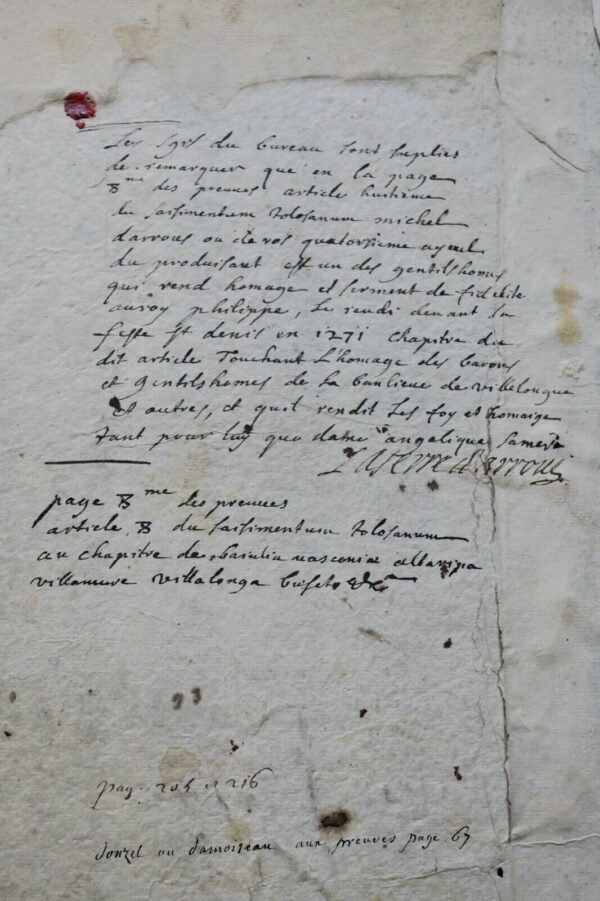 Les sgrs du bureau sont suplies
de remarquer que en la page
8me des preuves article huitieme
du saisimentum tolosanum michel
darrous ou de ros quatorsieme ayeul
du produisant est un des gentilshomes
qui rend homage et serment de fidelite
au roy philippe, Le jeudi devant la
feste st denis en 1271 chapitre du
dit article Touchant L'homage des barons
et Gentilshomes de La banlieue de villelongue
et autres, et quil rendit Les foy et homaige
tant pour luy que dame angelique sa mere
Laserre d'arrous
page 8me des preuves
article 8 du saisimentum tolosanum
au chapitre de vasconia altaripa
villamure villalonga buseto &ca
93
pag. 205 et 216
donzel ou damoiseau aux preuves page 67